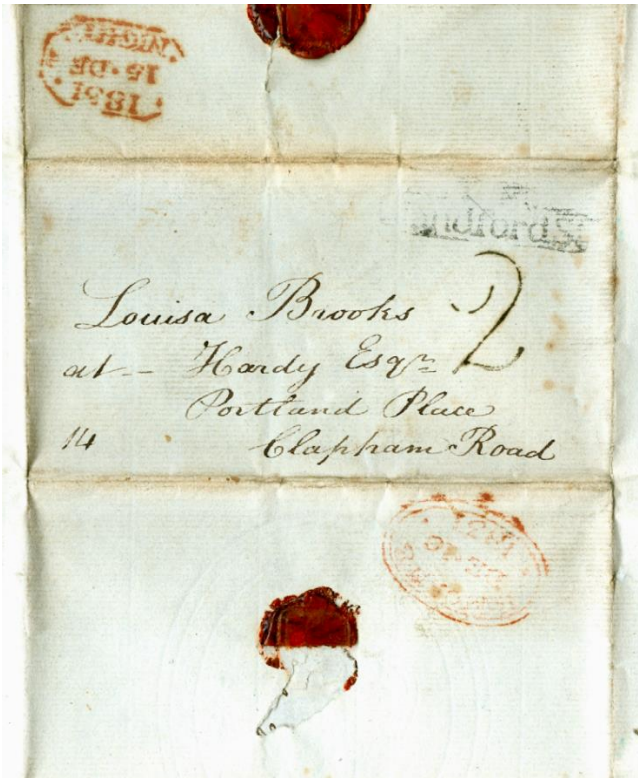 NIGHT
15·DE
1831
andford St
Louisa Brooks 2
at - Hardy Esqr
Portland Place
14 Clapham Road